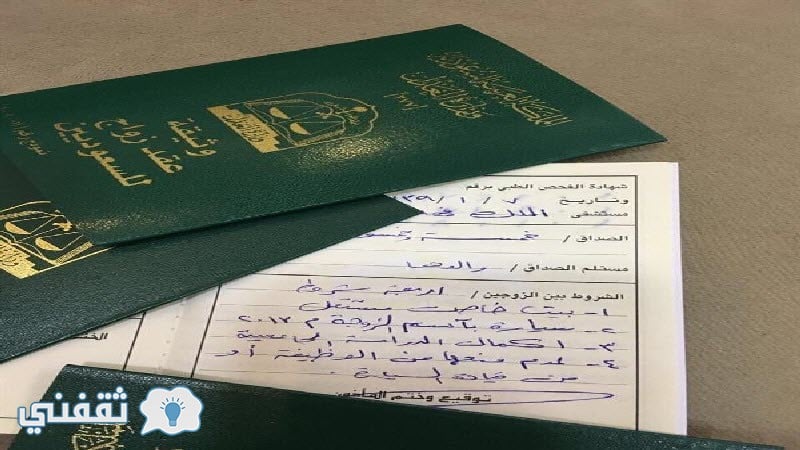 المملكة العربية السعودية
وزارة العدل
وثيقة
عقد زواج
للسعوديين
شهادة الفحص الطبي برقم
وتاريخ ٧ / ١ /
مستشفى الملك
الصداق / خمسة
مستلم الصداق / والدها
الشروط بين الزوجين /
١- بيت خاص مستقل
٢- سيارة بأسم الزوجة م ٢٠١٣
٣- اكمال الدراسة
٤- عدم منعها من الوظيفة أو
من قيادة السيارة
توقيع وختم المأذون
ثقفني